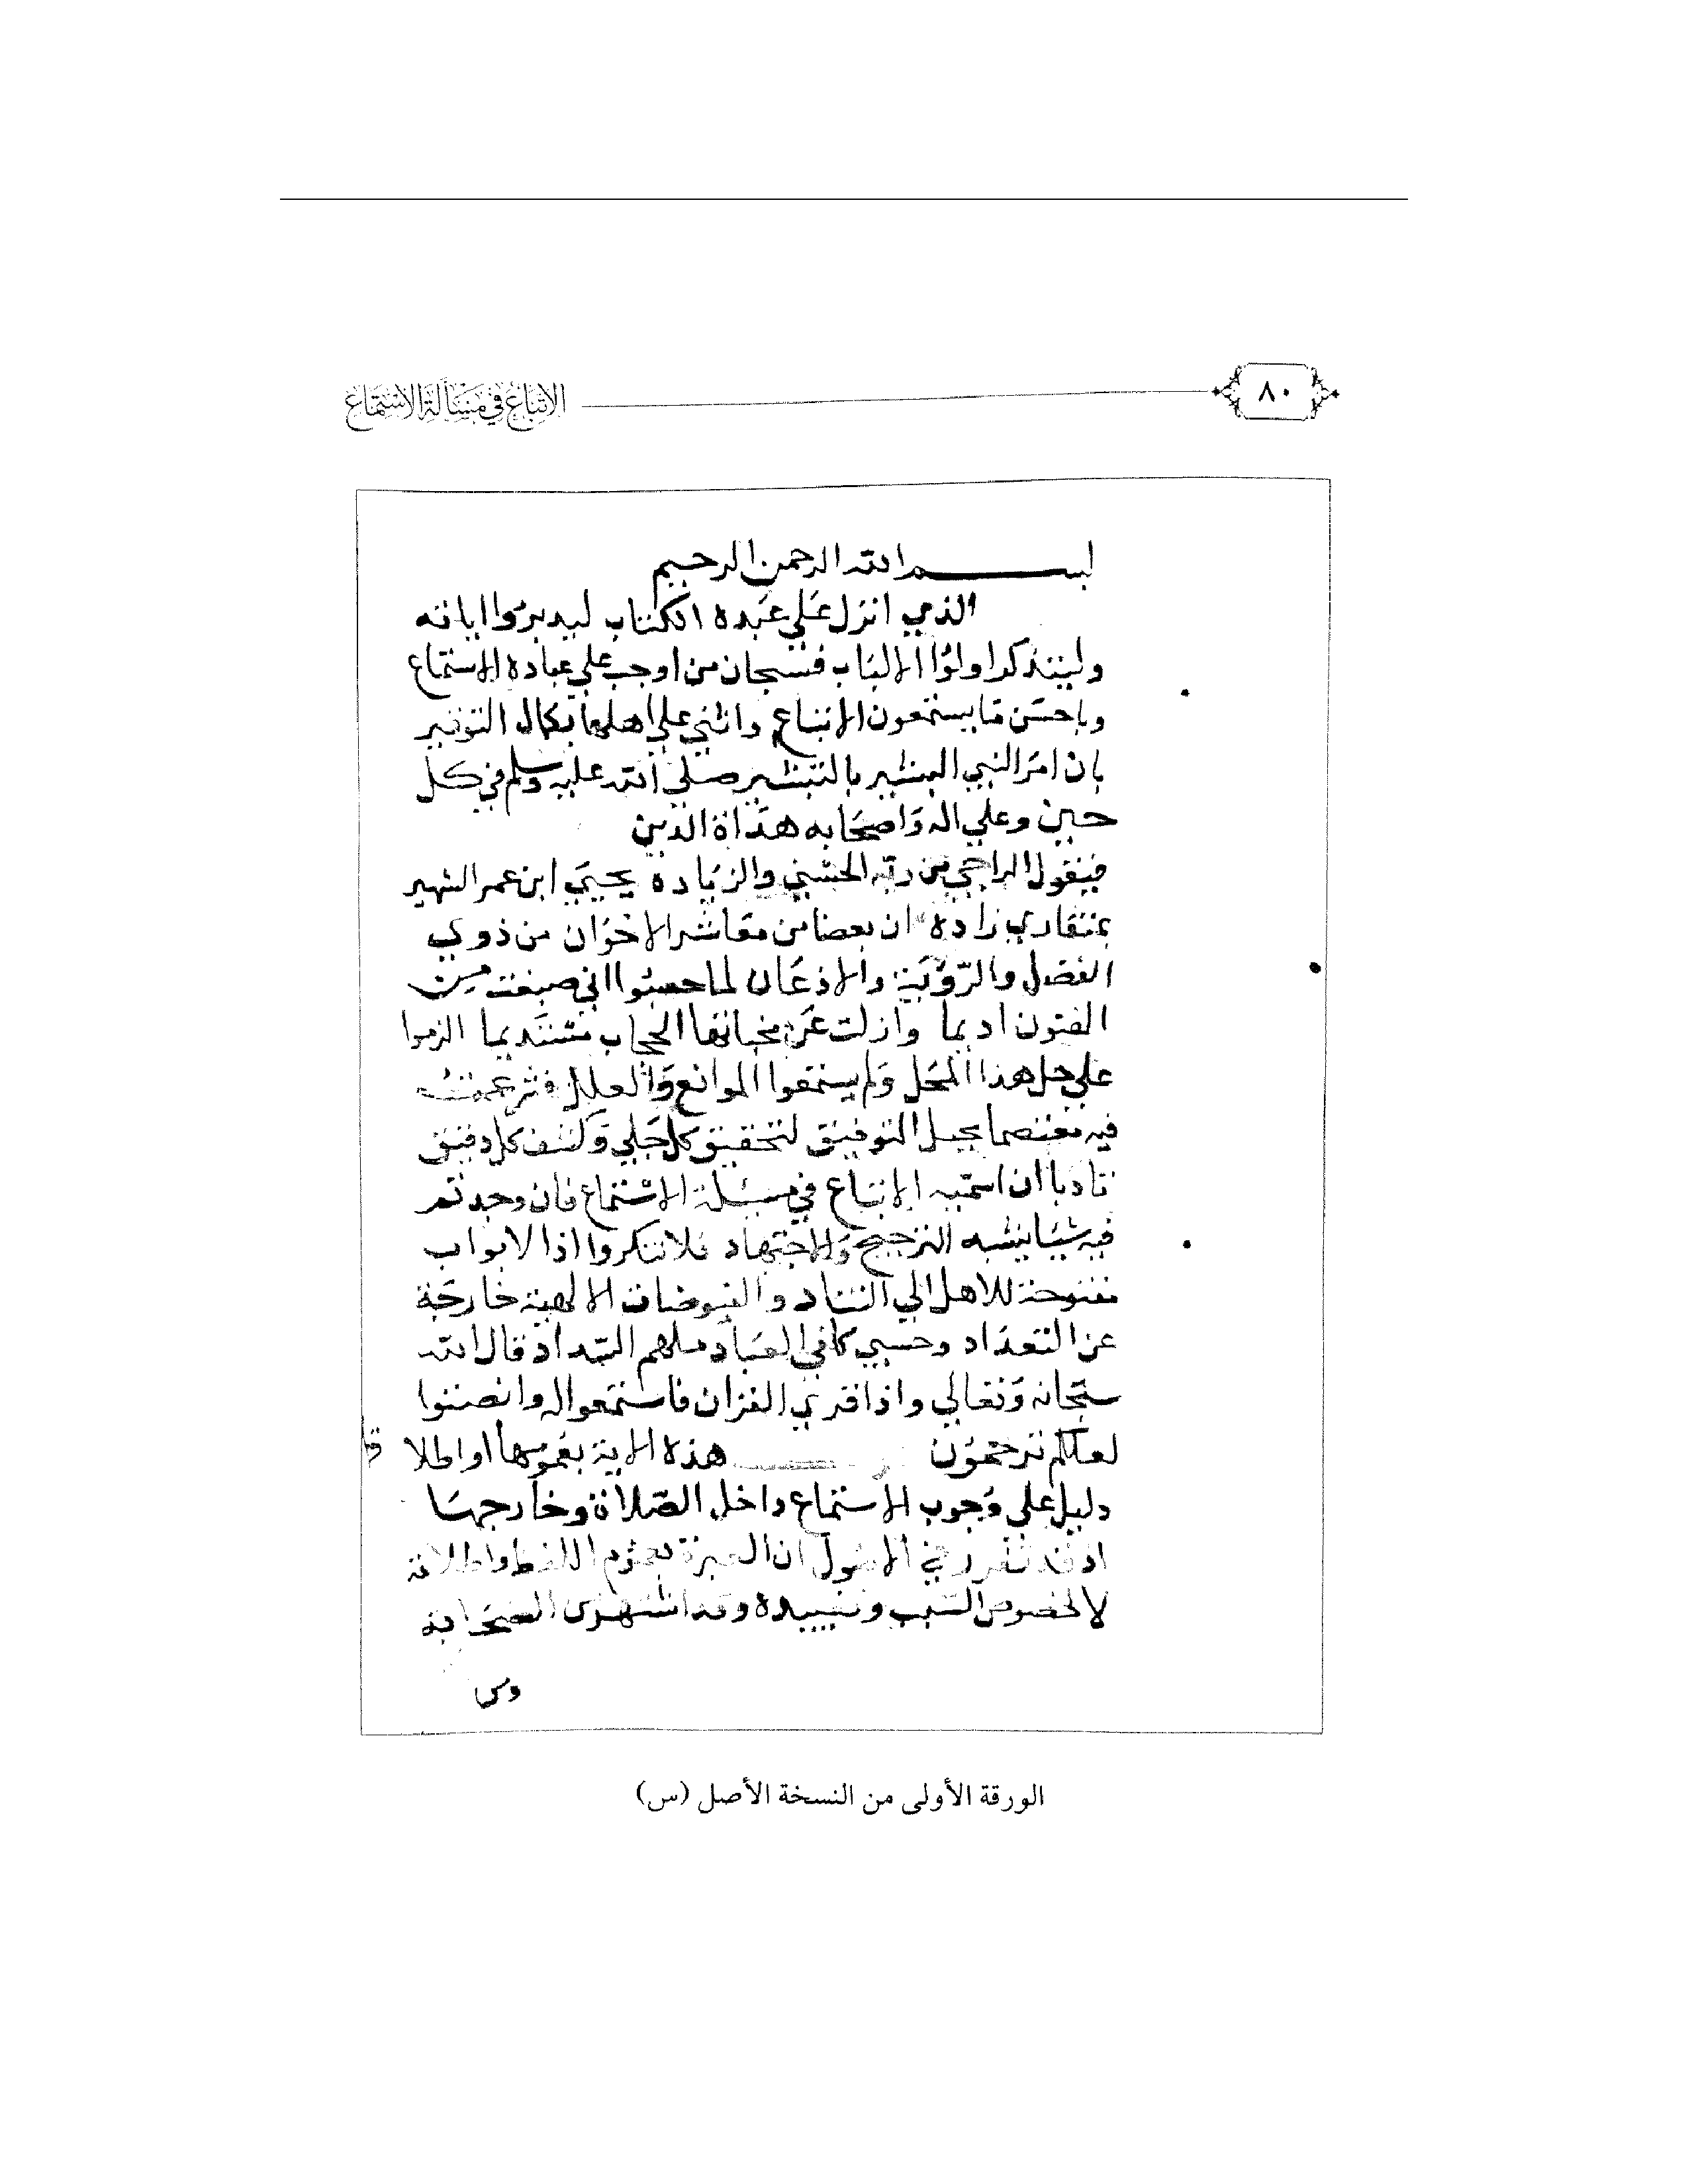 ٨٠
الاتباع في مسألة الاستماع
بسم الله الرحمن الرحيم
الذي انزل علي عبده الكتاب ليدبروا اياته
وليتذكر اولوا الالباب فسبحان من اوجب علي عباده الاستماع
وباحسن ما يستمعون الاتباع واثني علي اهلها بكمال التوقير
بان امر النبي البشير بالتبشير صلي الله عليه وسلم في كل
حين وعلي اله واصحابه هداة الدين
فيقول الراجي من ربه الحسني والزيادة يحيي ابن عمر الشهير
بمنقاري زاده ان بعضا من معاشر الاخوان من ذوي
الفضل والروية والاذعان لما حسبوا اني صبغت من
الفنون اديما وازلت عن مخباتها الحجاب مستديما الزموا
علي حل هذا المحل ولم يستمعوا الموانع والعلل
فيه معتصما بحبل التوفيق لتحقيق كل جلي وكشف كل دقيق
ناديا ان اسميه الاتباع في مسئلة الاستماع فان وجدتم
فيه شيا يشبه الترجيح والاجتهاد فلا تنكروا اذ الابواب
مفتوحة للاهل الي التناد والفيوضات الالهية خارجة
عن التعداد وحسبي كافي العباد ملهم السداد قال الله
سبحانه وتعالي واذا قري القران فاستمعوا له وانصتوا
لعلكم ترحمون هذه الاية بعمومها او اطلا قها
دليل علي وجوب الاستماع داخل الصلاة وخارجها
اذ قد تقرر في الاصول ان العبرة بعموم اللفظ واطلاقه
لا لخصوص السبب وتقييده وقد اشتهر من الصحابة
ومن
الورقة الأولى من النسخة الأصل (س)